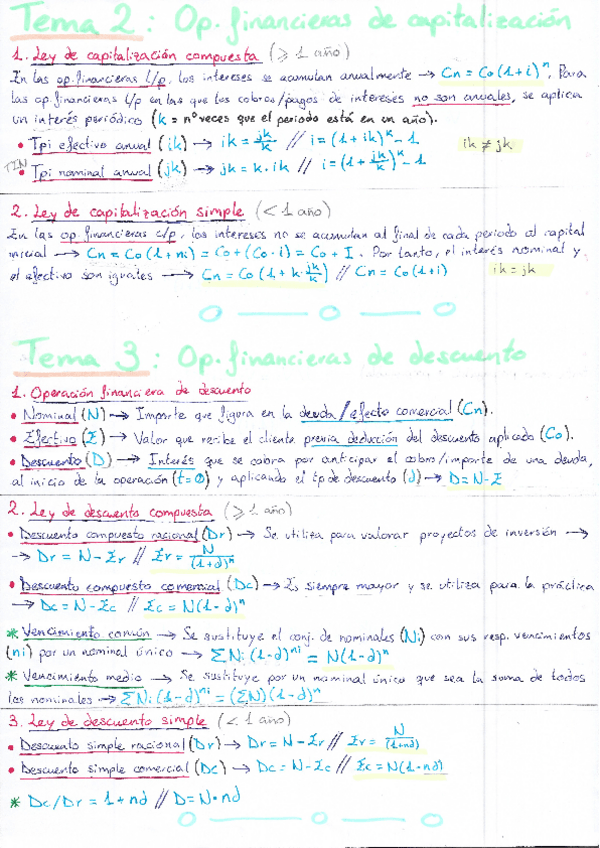 Tema 2: Op. financieras de capitalización
1. Ley de capitalización compuesta (⩾ 1 año)
En las op. financieras l/p, los intereses se acumulan anualmente → Cn = Co (1+i)ⁿ. Para
las op. financieras l/p en las que los cobros/pagos de intereses no son anuales, se aplica
un interés periódico (k = nº veces que el periodo está en un año).
• Tpi efectivo anual (ik) → ik = jk/k // i = (1+ik)ᵏ - 1 ik ≠ jk
TIN
• Tpi nominal anual (jk) → jk = k · ik // i = (1 + jk/k)ᵏ - 1
2. Ley de capitalización simple (< 1 año)
En las op. financieras c/p, los intereses no se acumulan al final de cada periodo al capital
inicial → Cn = Co (1+ni) = Co + (Co · i) = Co + I. Por tanto, el interés nominal y
el efectivo son iguales → Cn = Co (1 + k · jk/k) // Cn = Co (1+i) ik = jk
Tema 3: Op. financieras de descuento
1. Operación financiera de descuento
• Nominal (N) → Importe que figura en la deuda/efecto comercial (Cn).
• Efectivo (E) → Valor que recibe el cliente previa deducción del descuento aplicado (Co).
• Descuento (D) → Interés que se cobra por anticipar el cobro/importe de una deuda,
al inicio de la operación (t=0) y aplicando el tpo de descuento (d) → D = N - E
2. Ley de descuento compuesta (⩾ 1 año)
• Descuento compuesto racional (Dr) → Se utiliza para valorar proyectos de inversión →
→ Dr = N - Er // Er = N/(1+d)ⁿ
• Descuento compuesto comercial (Dc) → Es siempre mayor y se utiliza para la práctica
→ Dc = N - Ec // Ec = N(1-d)ⁿ
* Vencimiento común → Se sustituye el conj. de nominales (Ni) con sus resp. vencimientos
(ni) por un nominal único → ΣNi (1-d)ⁿⁱ = N(1-d)ⁿ
* Vencimiento medio → Se sustituye por un nominal único que sea la suma de todos
los nominales → ΣNi (1-d)ⁿⁱ = (ΣN)(1-d)ⁿ
3. Ley de descuento simple (< 1 año)
• Descuento simple racional (Dr) → Dr = N - Er // Er = N/(1+nd)
• Descuento simple comercial (Dc) → Dc = N - Ec // Ec = N(1-nd)
* Dc/Dr = 1+nd // D = N · nd